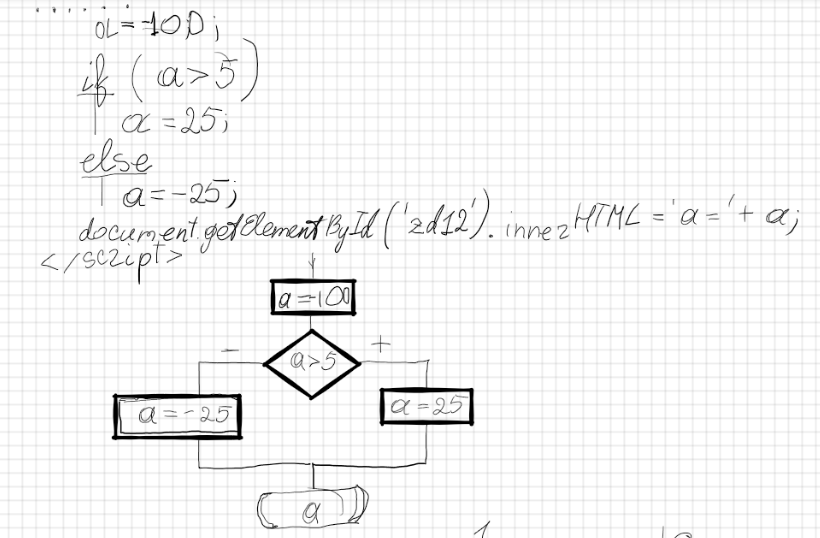 a=-100;
if (a>5)
a=25;
else
a=-25;
document.getElementById('zd12').innerHTML='a='+a;
</script>
a=-100
- a>5 +
a=-25 a=25
a